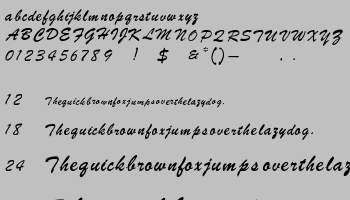 abcdefghijklmnopqrstuvwxyz
ABCDEFGHIJKLMNOPQRSTUVWXYZ
0123456789 ! $ &*()– . .
12 Thequickbrownfoxjumpsoverthelazydog.
18 Thequickbrownfoxjumpsoverthelazydog.
24 Thequickbrownfoxjumpsoverthelaz